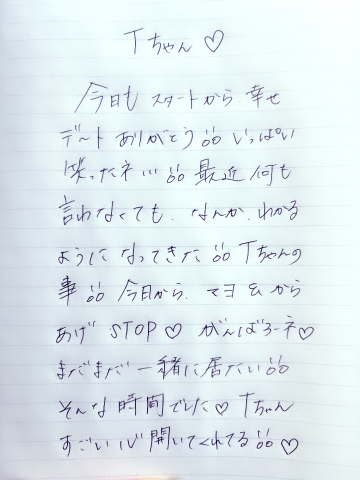 Tちゃん♡
今日も スタートから 幸せ
デート ありがとう!! いっぱい
笑ったネ!!! 最近 何も
言わなくても、なんか、わかる
ように なってきた!! Tちゃんの
事!! 今日から、マヨ & から
あげ STOP♡ がんばろーネ♡
まだまだ 一緒に 居たい!!
そんな 時間でした♡ Tちゃん
すごい 心 開いてくれてる!!♡